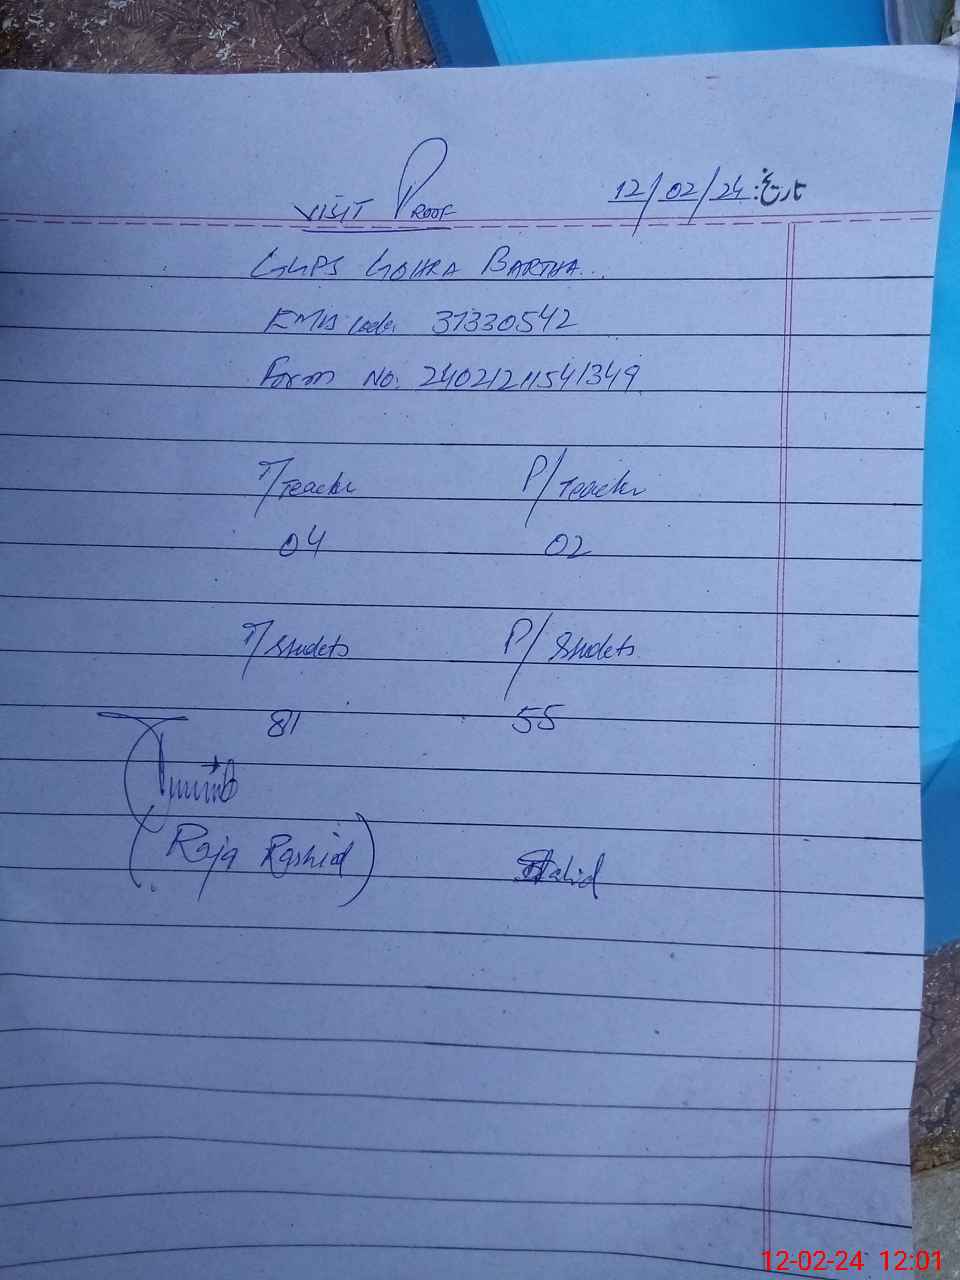 VISIT PROOF
12/02/24 :تاریخ
GGPS GOHRA BARTHA..
EMIS Code. 31330542
Form No. 24021211541349
T/Teacher P/Teacher
04 02
T/Studets P/Studets
81 55
(Raja Rashid)
12-02-24 12:01